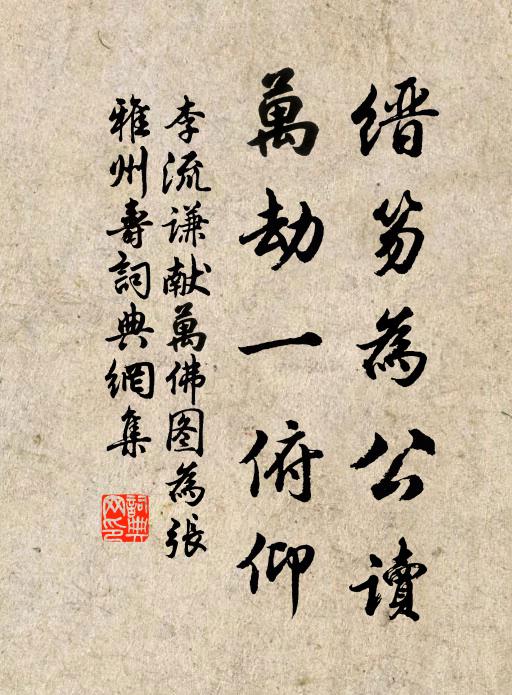 缙笏為公讀
萬劫一俯仰
李流谦献萬佛图為張
雅州壽詞典網集
詞典網印